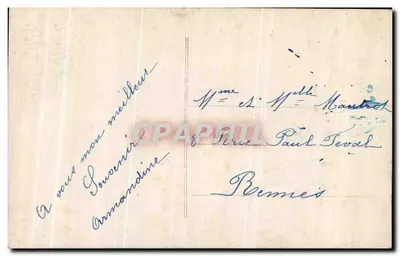 A vous mon meilleur
Souvenir
Armandine
Mme et Melle Mautret
8 Rue Paul Feval
Rennes
CPAPHIL